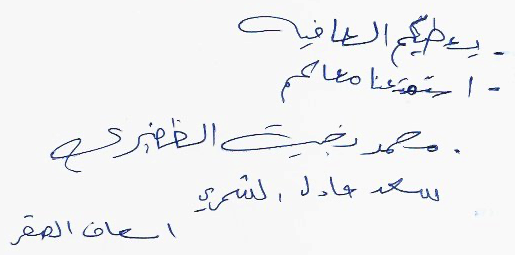 - يعطيكم العافيه
- استمتعنا معاكم
. محمد بخيت الظفيري
سعد عادل الشمري
اسعاف الصقر